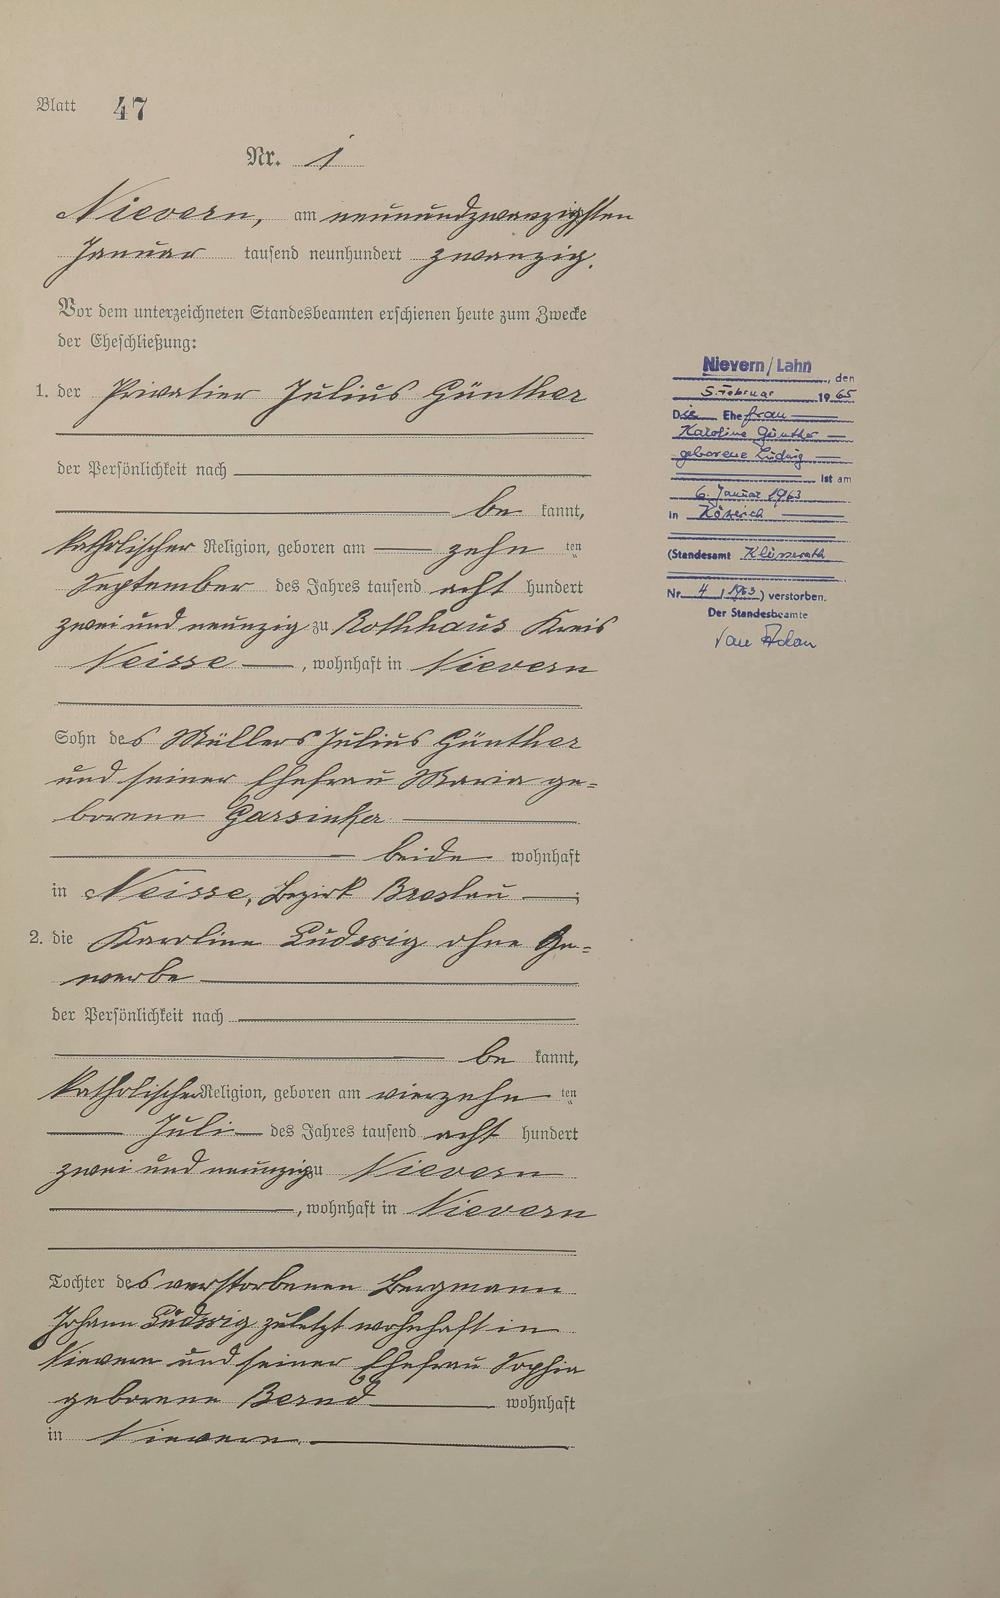 Blatt 47
Nr. 1
Nievern, am neunundzwanzigsten
Januar tausend neunhundert zwanzig.
Vor dem unterzeichneten Standesbeamten erschienen heute zum Zwecke
der Eheschließung:
1. der Privatier Julius Günther
der Persönlichkeit nach
be kannt,
katholischer Religion, geboren am zehn ten
September des Jahres tausend acht hundert
zwei und neunzig zu Rothhaus Kreis
Neisse, wohnhaft in Nievern
Sohn des Müllers Julius Günther
und seiner Ehefrau Maria ge-
borene
beide wohnhaft
in Neisse, Bezirk Breslau;
2. die Karoline Ludwig ohne Ge-
werbe
der Persönlichkeit nach
be kannt,
katholischer Religion, geboren am vierzehn ten
Juli des Jahres tausend acht hundert
zwei und neunzig zu Nievern
, wohnhaft in Nievern
Tochter des verstorbenen Bergmann
Johann Ludwig zuletzt wohnhaft in
Nievern und seiner Ehefrau Sophia
geborene Bernd wohnhaft
in Nievern.
Nievern/Lahn
, den
5. Februar 1965
Die Ehefrau
Karoline Günther
geborene Ludwig
ist am
6. Januar 1963
in
(Standesamt Klüsserath
Nr. 4 / 1963) verstorben.
Der Standesbeamte